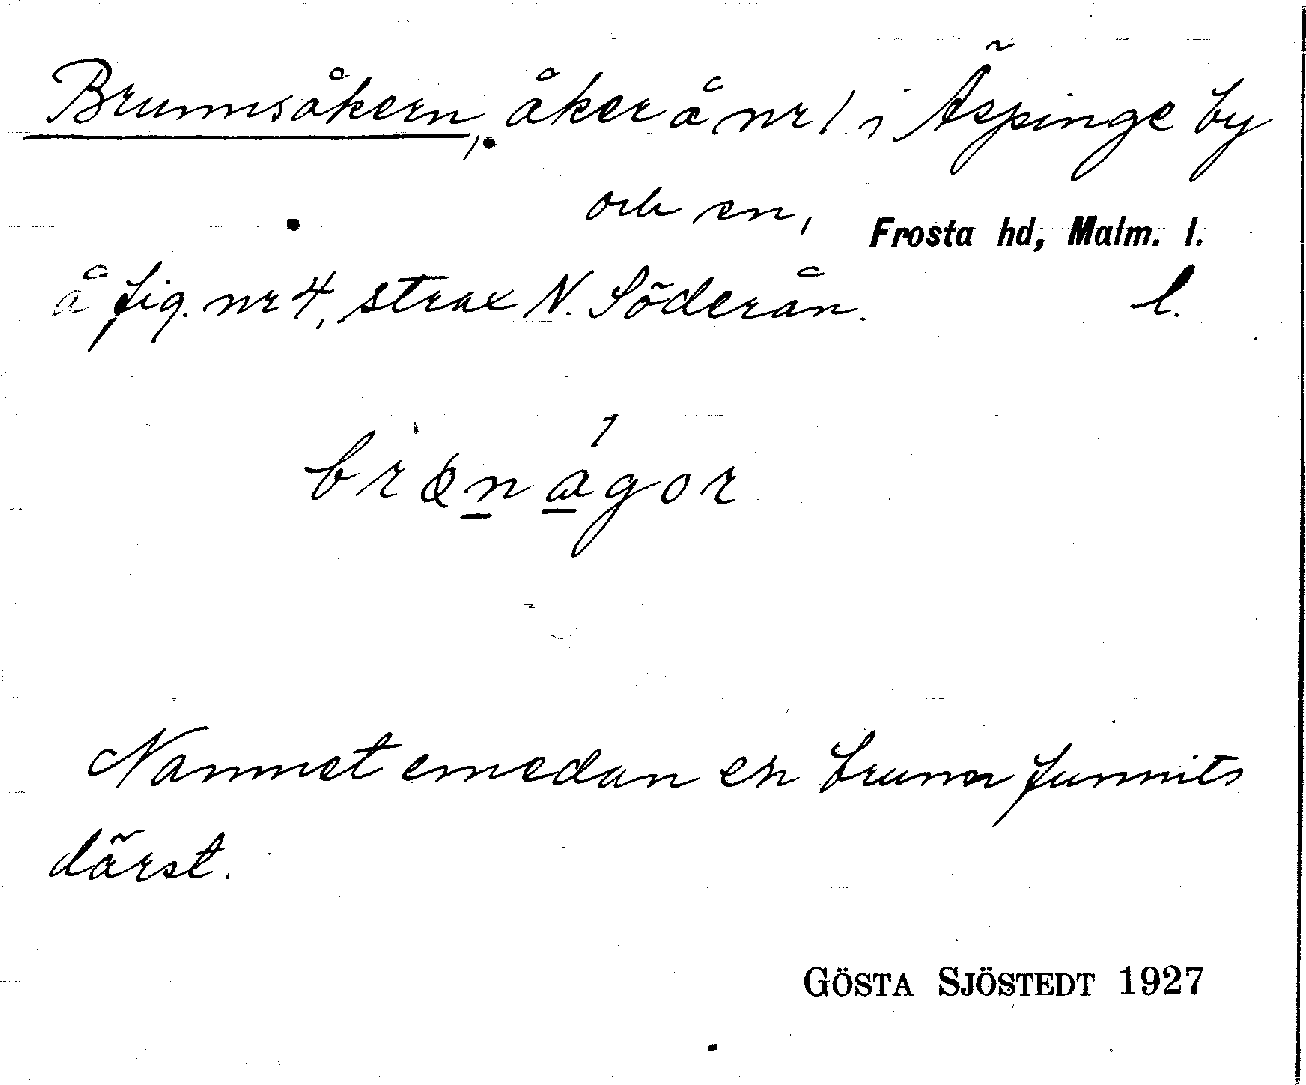 Brunnsåkern, åker å nr 1 i Äspinge by
och en,
Frosta hd, Malm. l.
å fig. nr 4, strax N. Söderån. l.
Namnet emedan en brunn funnits
därst.
GÖSTA SJÖSTEDT 1927